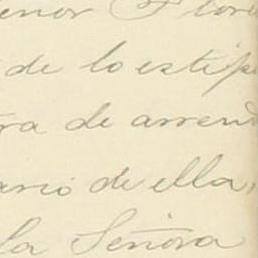 enor Flore
de lo estip
ra de arrend
ario de ella,
la Señora